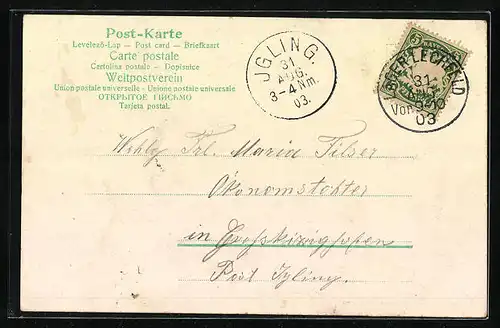 Post-Karte
Levelező-Lap — Post card — Briefkaart
Carte postale
Cartolina postale — Dopisnice
Weltpostverein
Union postale universelle - Unione postale universale
ОТКРЫТОЕ ПИСЬМО
Tarjeta postal.
JGLING.
31.
AUG.
3-4 Nm.
03.
LECHFELD
31.
Vorm. 9-10
03
Frl. Maria Filser
Ökonomstochter
in Großkitzighofen
Post Igling.